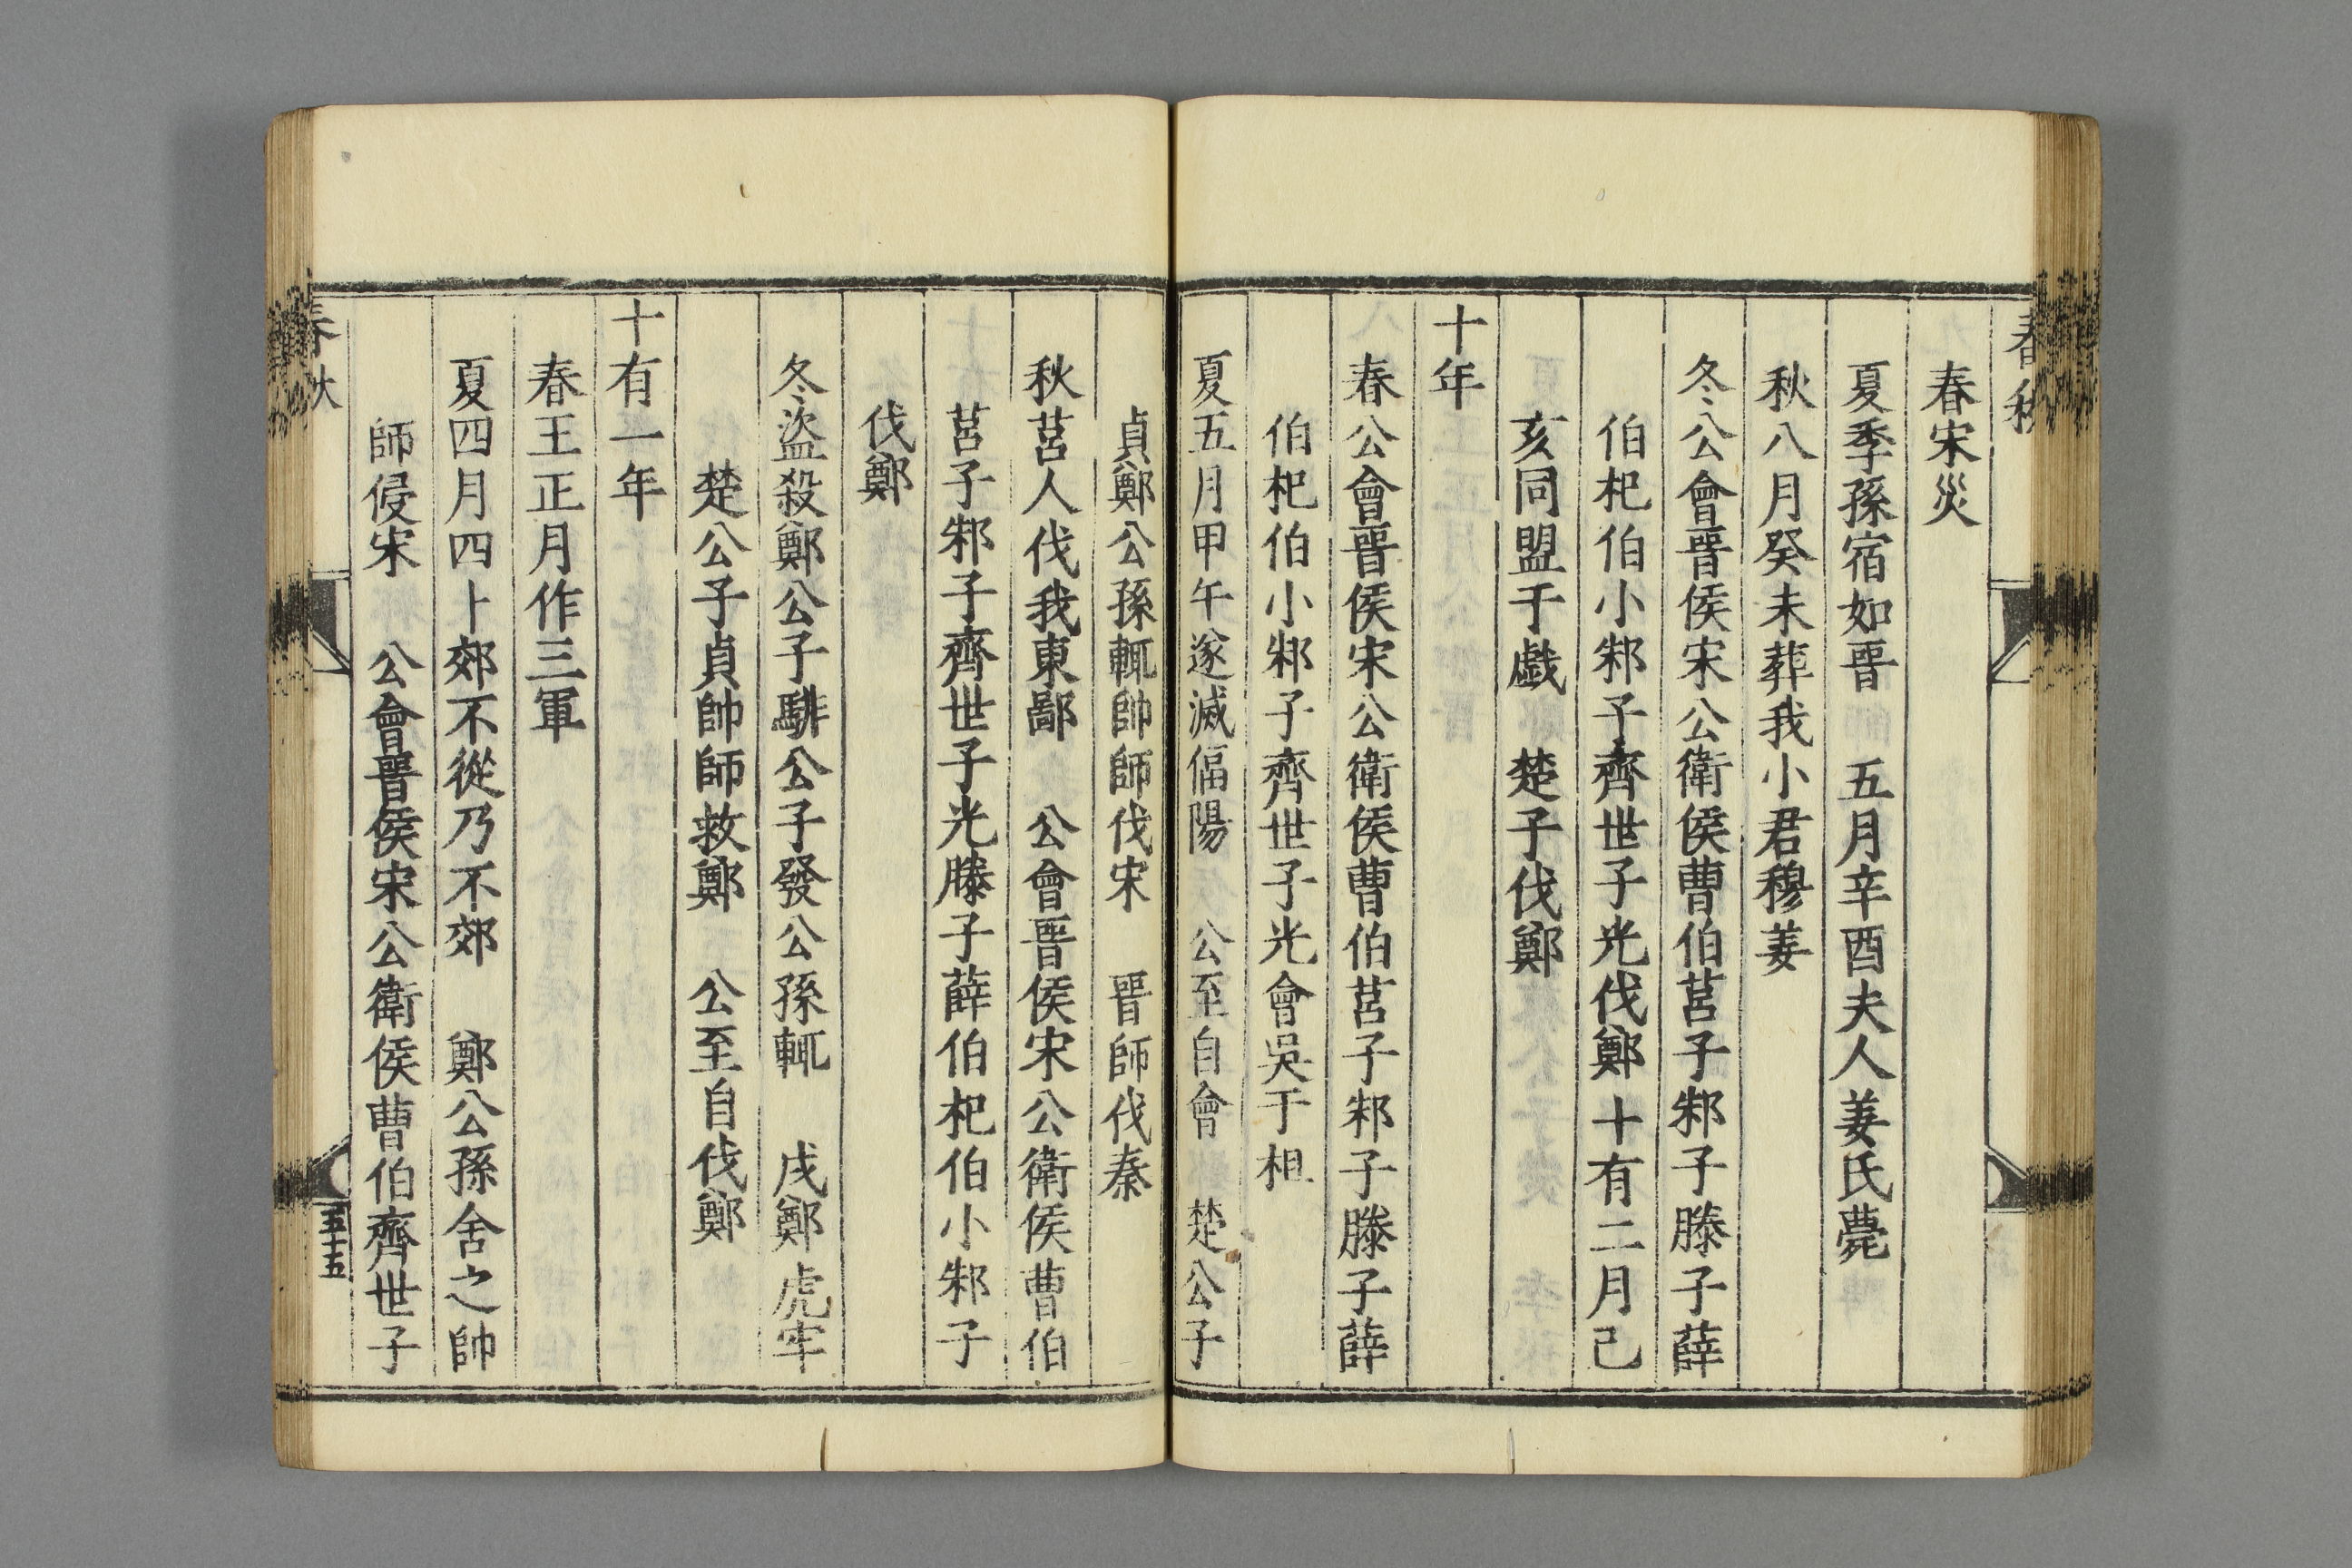 春秋
春宋災
夏季孫宿如晉　五月辛酉夫人姜氏薨
秋八月癸未葬我小君穆姜
冬公會晉侯宋公衛侯曹伯莒子邾子滕子薛
伯杞伯小邾子齊世子光伐鄭十有二月己
亥同盟于戲　楚子伐鄭
十年
春公會晉侯宋公衛侯曹伯莒子邾子滕子薛
伯杞伯小邾子齊世子光會吳于柤
夏五月甲午遂滅偪陽　公至自會　楚公子
貞鄭公孫輒帥師伐宋　晉師伐秦
秋莒人伐我東鄙　公會晉侯宋公衛侯曹伯
莒子邾子齊世子光滕子薛伯杞伯小邾子
伐鄭
冬盜殺鄭公子騑公子發公孫輒　戍鄭虎牢
楚公子貞帥師救鄭　公至自伐鄭
十有一年
春王正月作三軍
夏四月四卜郊不從乃不郊　鄭公孫舍之帥
師侵宋　公會晉侯宋公衛侯曹伯齊世子
春秋
五十五